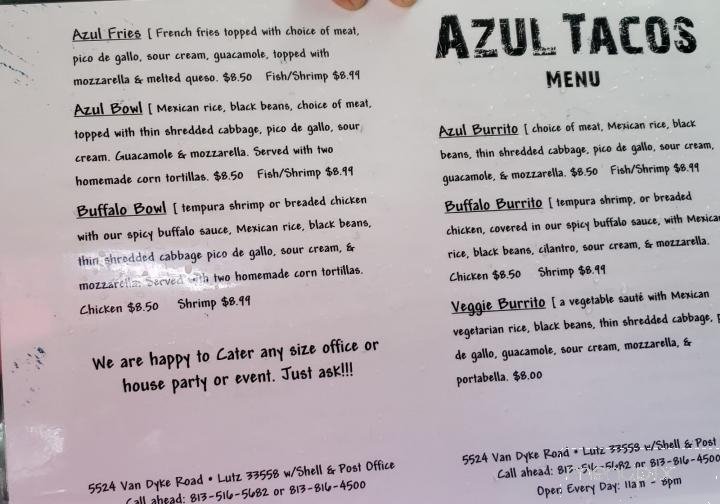 Azul Fries [ French fries topped with choice of meat,
pico de gallo, sour cream, guacamole, topped with
mozzarella & melted queso. $8.50 Fish/Shrimp $8.99
Azul Bowl [ Mexican rice, black beans, choice of meat,
topped with thin shredded cabbage, pico de gallo, sour
cream. Guacamole & mozzarella. Served with two
homemade corn tortillas. $8.50 Fish/Shrimp $8.99
Buffalo Bowl [ tempura shrimp or breaded chicken
with our spicy buffalo sauce, Mexican rice, black beans,
thin shredded cabbage pico de gallo, sour cream, &
mozzarella. Served with two homemade corn tortillas.
Chicken $8.50 Shrimp $8.99
We are happy to Cater any size office or
house party or event. Just ask!!!
5524 Van Dyke Road • Lutz 33558 w/Shell & Post Office
Call ahead: 813-516-5682 or 813-816-4500
AZUL TACOS
MENU
Azul Burrito [ choice of meat, Mexican rice, black
beans, thin shredded cabbage, pico de gallo, sour cream,
guacamole, & mozzarella. $8.50 Fish/Shrimp $8.99
Buffalo Burrito [ tempura shrimp, or breaded
chicken, covered in our spicy buffalo sauce, with Mexican
rice, black beans, cilantro, sour cream, & mozzarella.
Chicken $8.50 Shrimp $8.99
Veggie Burrito [ a vegetable sauté with Mexican
vegetarian rice, black beans, thin shredded cabbage,
de gallo, guacamole, sour cream, mozzarella, &
portabella. $8.00
5524 Van Dyke Road • Lutz 33558 w/Shell & Post
Call ahead: 813-516-5682 or 813-816-4500
Open Every Day: 11am - 8pm